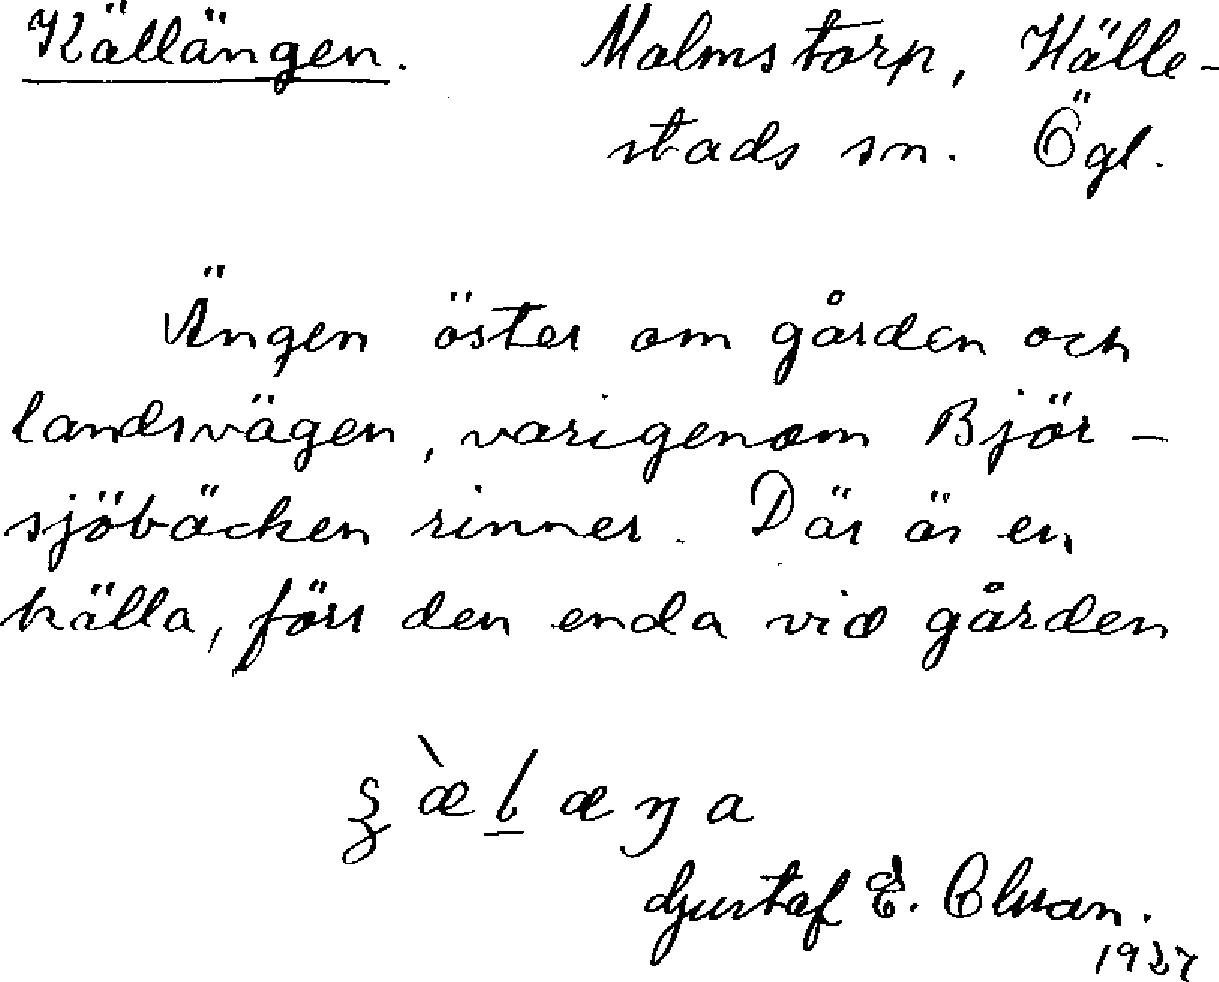 Källängen. Malmstorp, Hälle-
stads sn. Ögl.
Ängen öster om gården och
landsvägen, varigenom Björ-
sjöbäcken rinner. Där är en
källa, förr den enda vid gården
Gustaf E. Olsson.
1927